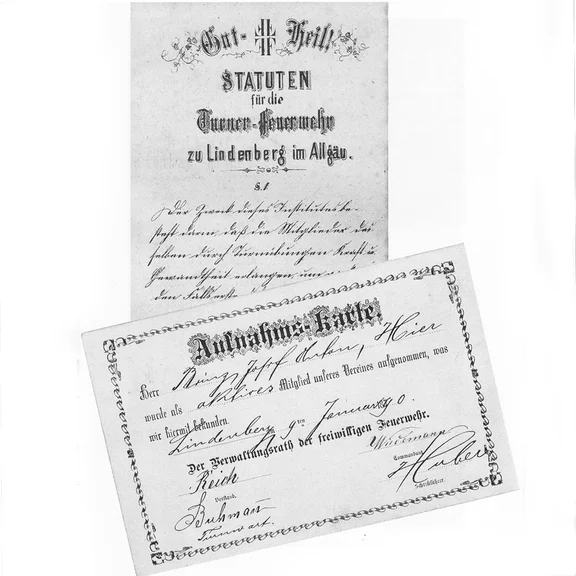 Gut- Heil!
STATUTEN
für die
Turner-Feuerwehr
zu Lindenberg im Allgäu.
§. 1
Der Zweck dieses Institutes be-
steht darin, daß die Mitglieder des
selben durch Turnübungen Kraft u.
Gewandtheit erlangen um
den Fall
Aufnahms-Karte!
Herr Josef Anton, Hier
wurde als aktives Mitglied unseres Vereines aufgenommen, was
wir hiermit bekunden
Lindenberg 9ten Januar 90.
Der Verwaltungsrath der freiwilligen Feuerwehr.
Reich
Vorstand.
Buhman
Turnwart.
Wiedemann
Commandant
Huber
Schriftführer